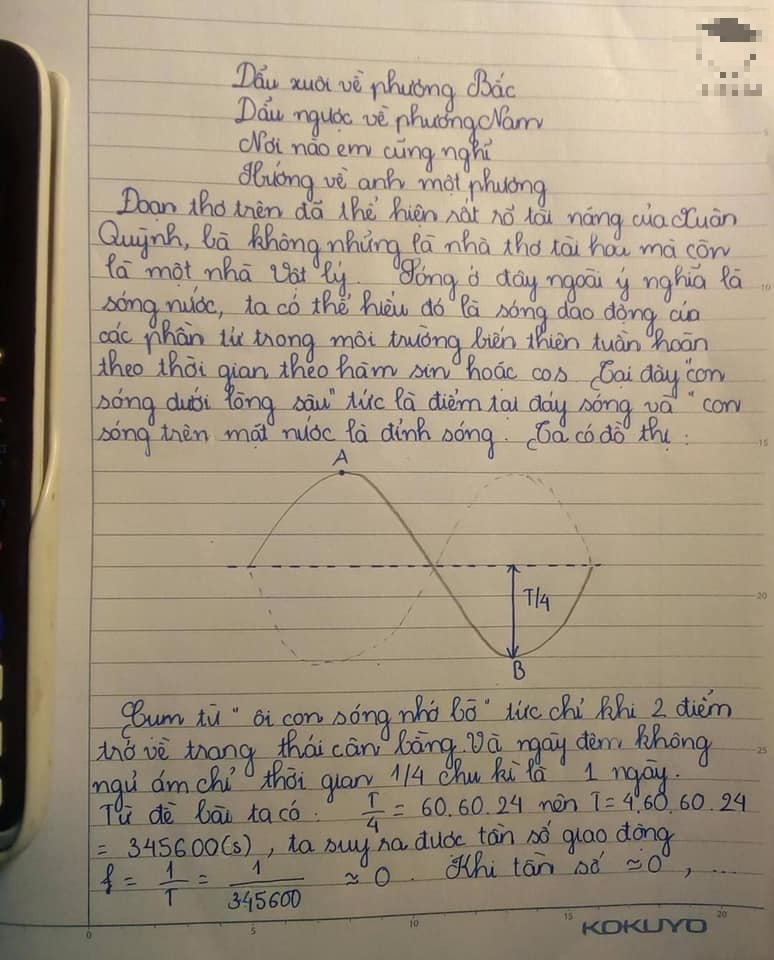 Dẩu xuôi về phương Bắc
Dẩu ngược về phương Nam
Nơi nào em cũng nghĩ
Hướng về anh một phương
Đoạn thơ trên đã thể hiện rất rõ tài năng của Xuân
Quỳnh, bà không những là nhà thơ tài hoa mà còn
là một nhà Vật lý. Sóng ở đây ngoài ý nghĩa là
sóng nước, ta có thể hiểu đó là sóng dao động của
các phần tử trong môi trường biến thiên tuần hoàn
theo thời gian theo hàm sin hoặc cos. Tại đây "con
sóng dưới lòng sâu" tức là điểm tại đáy sóng và "con
sóng trên mặt nước là đỉnh sóng. Ta có đồ thị:
A
T/4
B
Cụm từ "ôi con sóng nhớ bờ" tức chỉ khi 2 điểm
trở về trạng thái cân bằng. Và ngày đêm không
ngủ ám chỉ thời gian 1/4 chu kì là 1 ngày.
Từ đề bài ta có. T/4 = 60.60.24 nên T = 4.60.60.24
= 345600(s), ta suy ra được tần số giao động
f = 1/T = 1/345600 ≈ 0. Khi tần số ≈ 0, ...
KOKUYO
0 5 10 15 20
5
10
15
20
25